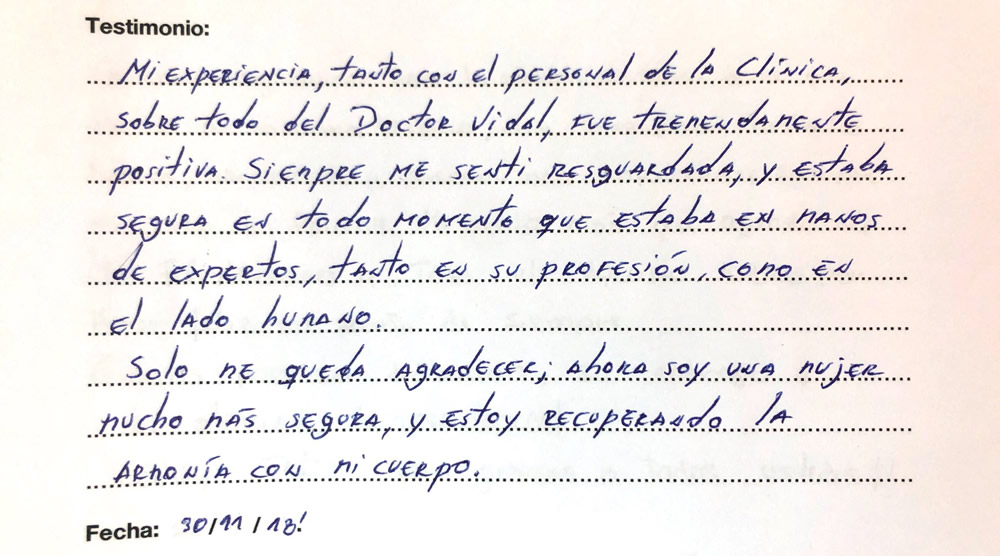 Testimonio:
Mi experiencia, tanto con el personal de la Clínica,
sobre todo del Doctor Vidal, fue tremendamente
positiva. Siempre me sentí resguardada, y estaba
segura en todo momento que estaba en manos
de expertos, tanto en su profesión, como en
el lado humano.
Solo me queda agradecer; ahora soy una mujer
mucho más segura, y estoy recuperando la
armonía con mi cuerpo.
Fecha: 30/11/18!